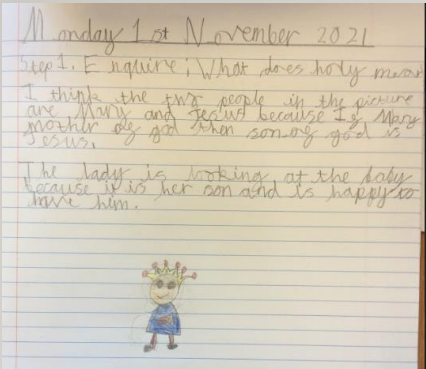 Monday 1st November 2021
Step 1. Enquire: What does holy mean
I think the two people in the picture
are Mary and Jesus because If Mary
mother of god then son of god is
Jesus.
The lady is looking at the baby
because it is her son and is happy to
have him.